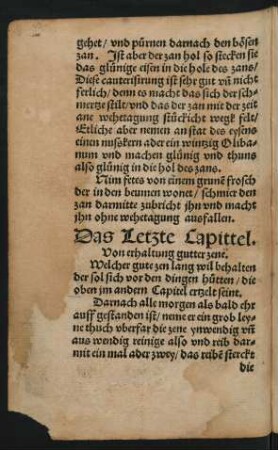 gehet / vnd pürnen darnach den bösen
zan. Ist aber der zan hol so stecken sie
das glünige eisen in die hole des zans/
Diese cauterisirung ist sehr gut vñ nicht
ferlich / denn es macht das sich der sch-
mertze stilt / vnd das der zan mit der zeit
ane wehetagung stückicht wegk felt/
Etliche aber nemen an stat des eysens
einen nuskern ader ein wintzig Oliba-
num vnd machen glünig vnd thuns
also glünig in die hol des zans.
Nim fetes von einem grunē frosch
der in den beumen wonet / schmier den
zan darmitte zubricht jhn vnd macht
jhn ohne wehetagung ausfallen.
Das Letzte Capittel.
Von erhaltung gutter zene.
Welcher gute zen lang wil behalten
der sol sich vor den dingen hütten / die
oben jm andern Capitel ertzelt seint.
Darnach alle morgen als bald ehr
auff gestanden ist / neme er ein grob ley-
ne thuch vberfar die zene ynwendig vñ
aus wendig reinige also vnd reib dar-
mit ein mal ader zwey / das reibē sterckt
die